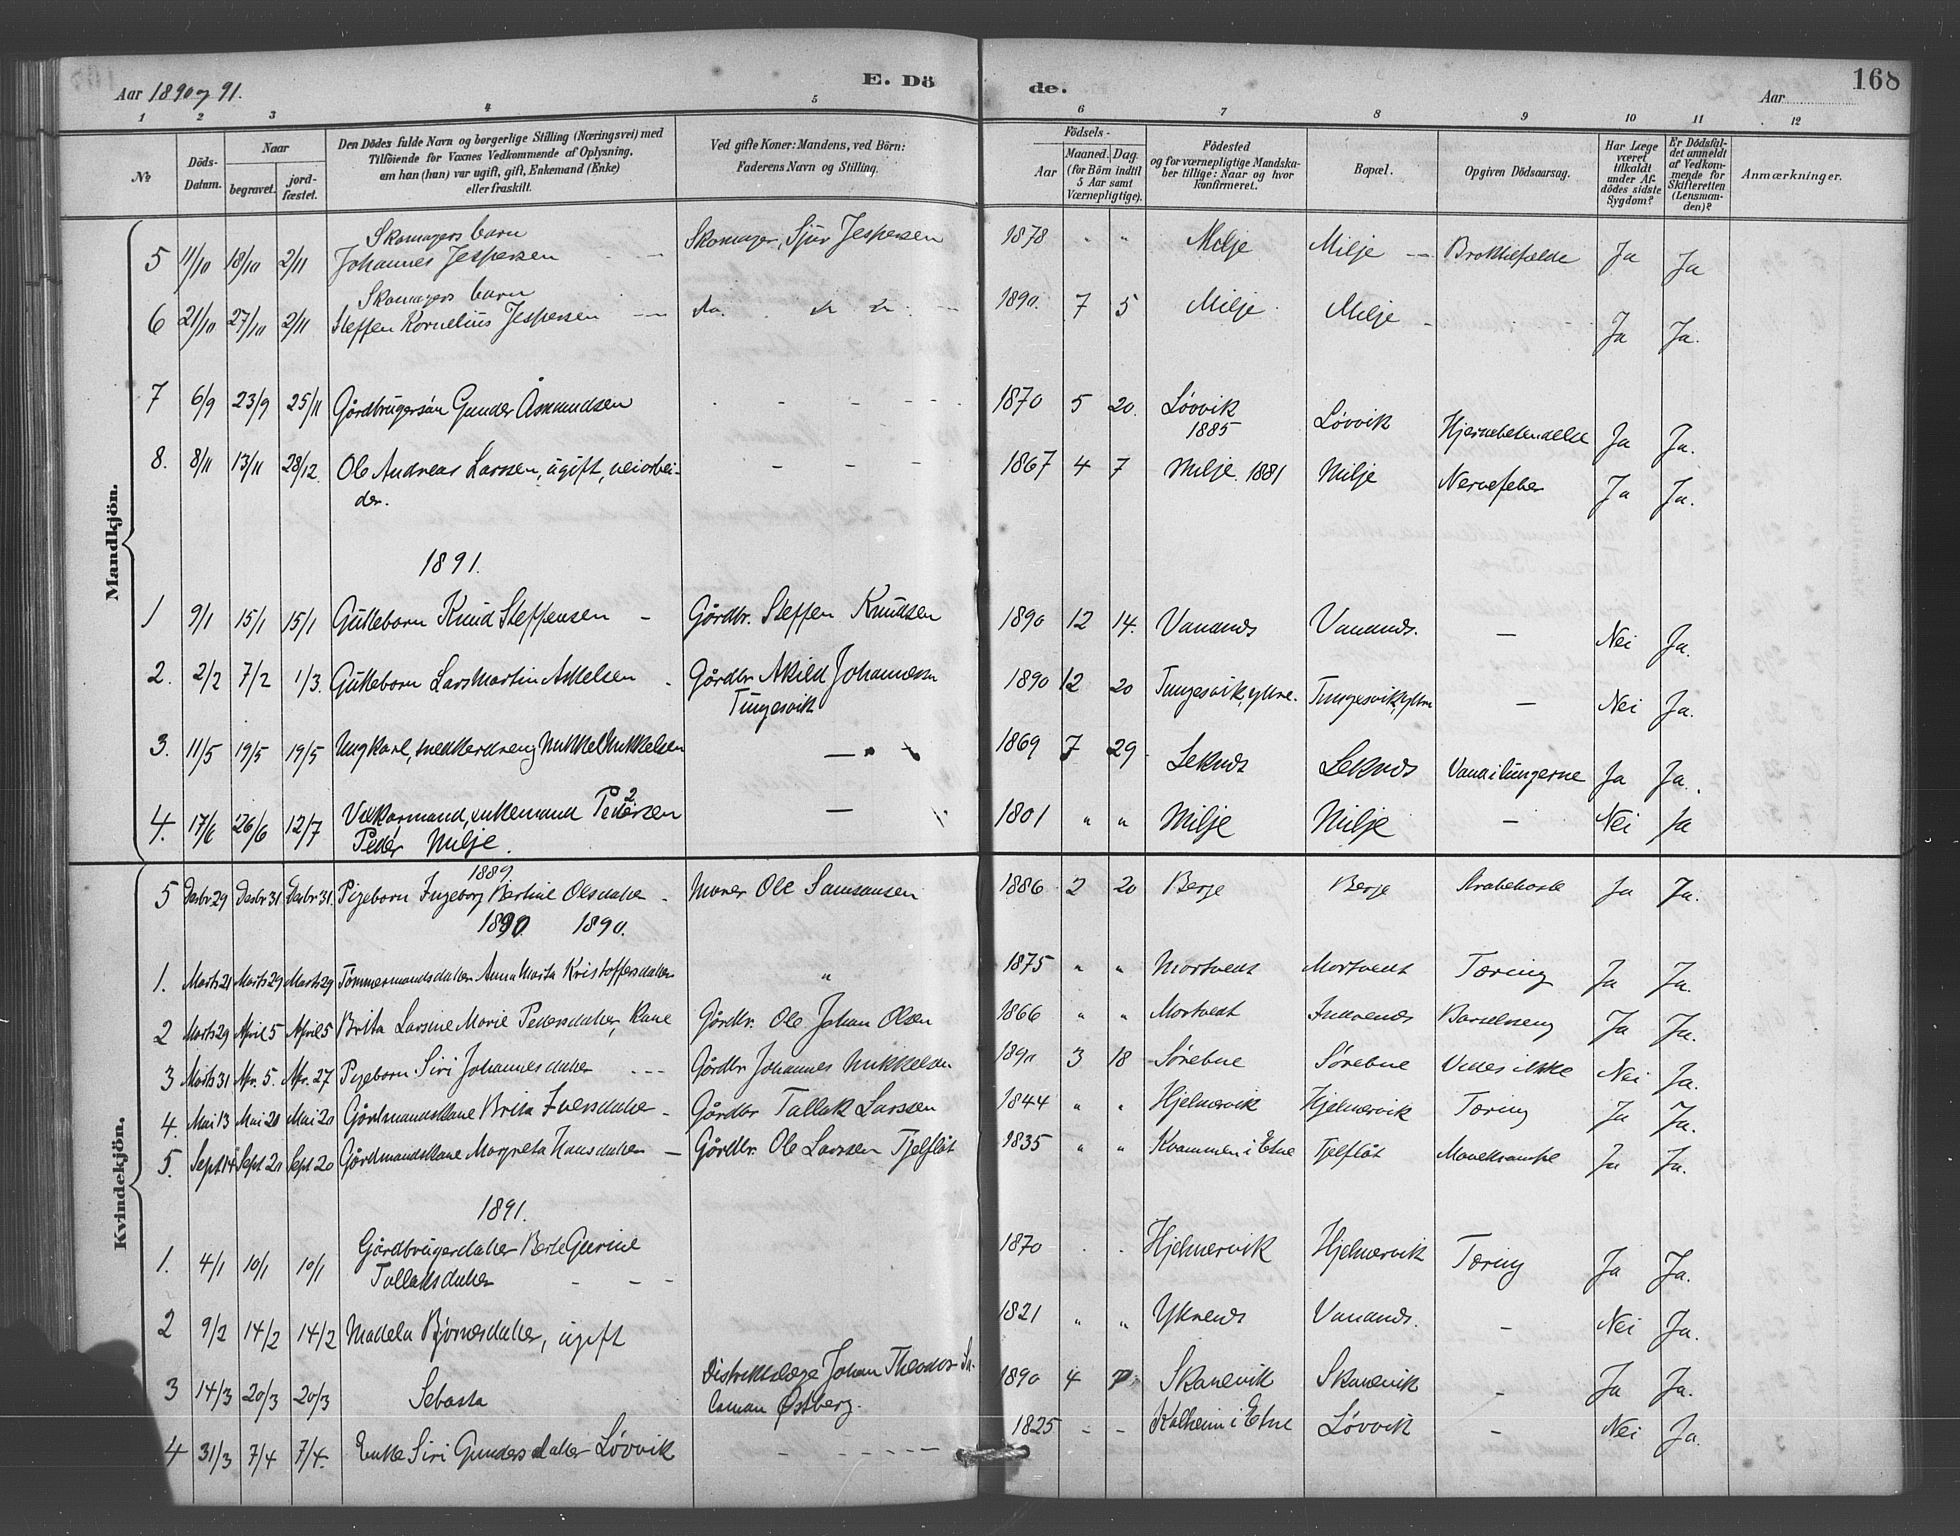 Aar 1890 og 91.
E. Dö
de.
168
Aar
1 2 3 4 5 6 7 8 9 10 11 12
№
Döds-Datum.
Naar
begravet.
jord-fæstet.
Den Dödes fulde Navn og borgerlige Stilling (Næringsvei) med
Tilföiende for Voxnes Vedkommende af Oplysning,
om han (hun) var ugift, gift, Enkemand (Enke)
eller fraskilt.
Ved gifte Koner: Mandens, ved Börn:
Faderens Navn og Stilling.
Födsels-
Aar
Maaned. Dag.
(for Börn indtil
5 Aar samt
Værnepligtige).
Födested
og for værnepligtige Mandska-
ber tillige: Naar og hvor
konfirmeret.
Bopæl.
Opgiven Dödsaarsag.
Har Læge
været
tilkaldt
under Af-
dödes sidste
Sygdom?
Er Dödsfal-
det anmeldt
af Vedkom-
mende for
Skifteretten
(Lensman-
den)?
Anmærkninger.
Mandkjön.
5 11/10 18/10 2/11 Skomagers barn Johannes Jespersen - - Skomager, Sjur Jespersen 1878 " " Milje Milje - - Ja Ja
6 21/10 27/10 2/11 Skomagers barn Steffen Kornelius Jespersen - - 1890. 7 5 Milje Milje - Ja Ja.
7 6/9 23/9 25/11 Gårdbrugersøn Gunder Åsmundsen - - - - 1870 5 20. Løvvik 1885 Løvvik Hjernebetendelse Ja Ja.
8. 8/11 13/11 28/12. Ole Andreas Larssen, ugift, veiarbei-
der. - - - 1867 4 7 Milje 1881 Milje Nervefeber Ja Ja.
1891.
1 9/1 15/1 15/1 Gutteborn Knud Steffensen - Gårdbr. Steffen Knudsen 1890 12 14. Vanands Vanands. - Nei Ja.
2. 2/2 7/2 1/3. Gutteborn Lars Martin Askelsen - Gårdbr Johannesen
Tungesvik 1890 12 20 Tungesvik, ytre. Tungesvik, ytre - Nei Ja.
3. 11/5 19/5 19/5 Ungkarl, snedkerdreng Mikkel Mikkelsen - 1869 7 29 Leknes Leknes Vand i lungerne Ja Ja.
4. 17/6 26/6 12/7 enkemand Pedersen
Peder Milje. - 1801 " " Milje Milje - Nei Ja
Kvindekjön.
1889
5 Desbr 29 Desbr 31 Desbr 31. Pigeborn Ingeborg Bertine Olsdatter - Murer Ole Samsonsen 1886 2 20 Berge Berge Strubehoste Ja Ja.
1890. 1890.
1. Marts 21 Marts 29 Marts 29 Tømmermandsdatter Anna Marta Kristoffersdatter " 1875 " " Mortvedt Mortvedt Tæring Ja Ja.
2 Marts 29 April 5 April 5 Brita Larsine Marie Pedersdatter, Kone Gårdbr. Ole Johan Olsen 1866 " " Mortvedt Barselseng Ja Ja.
3 Marts 31 Apr. 5. Apr. 27 Pigeborn Siri Johannesdatter - - - Gårdbr Johannes Mikkelsen 1890 3 18 Sørebøe Sørebøe Vides ikke Nei Ja.
4. Mai 13 Mai 20 Mai 20 Gårdmandskone Brita Iversdatter - Gårdbr Tallak Larssen 1844 " " Hjelmervik Hjelmervik Tæring Ja Ja.
5. Sept 14 Sept 20 Sept 20 Gårdmandskone Margreta Hansdatter - Gårdbr. Ole Larssen Tjelflåt 1835 " " Kvammen i Etne Tjelflåt Mavekrampe Ja Ja.
1891.
1. 4/1 10/1 10/1 Gårdbrugerdatter Berte Gurine
Tallaksdatter - - - 1870 . . Hjelmervik Hjelmervik Tæring Ja Ja.
2 9/2 14/2 14/2 Madela Bjørnesdatter, ugift 1821 " " Vanands. - Nei Ja.
3 14/3 20/3 20/3 Sebasta Distriktslæge Johan Theodor Sa-
loman Østberg. 1890 4 7 Skånevik Skånevik - Ja Ja.
4 31/3 7/4 7/4. Enke Siri Gundersdatter Løvvik - - - - - - 1825 - - Kalheim i Etne Løvvik - Nei Ja.